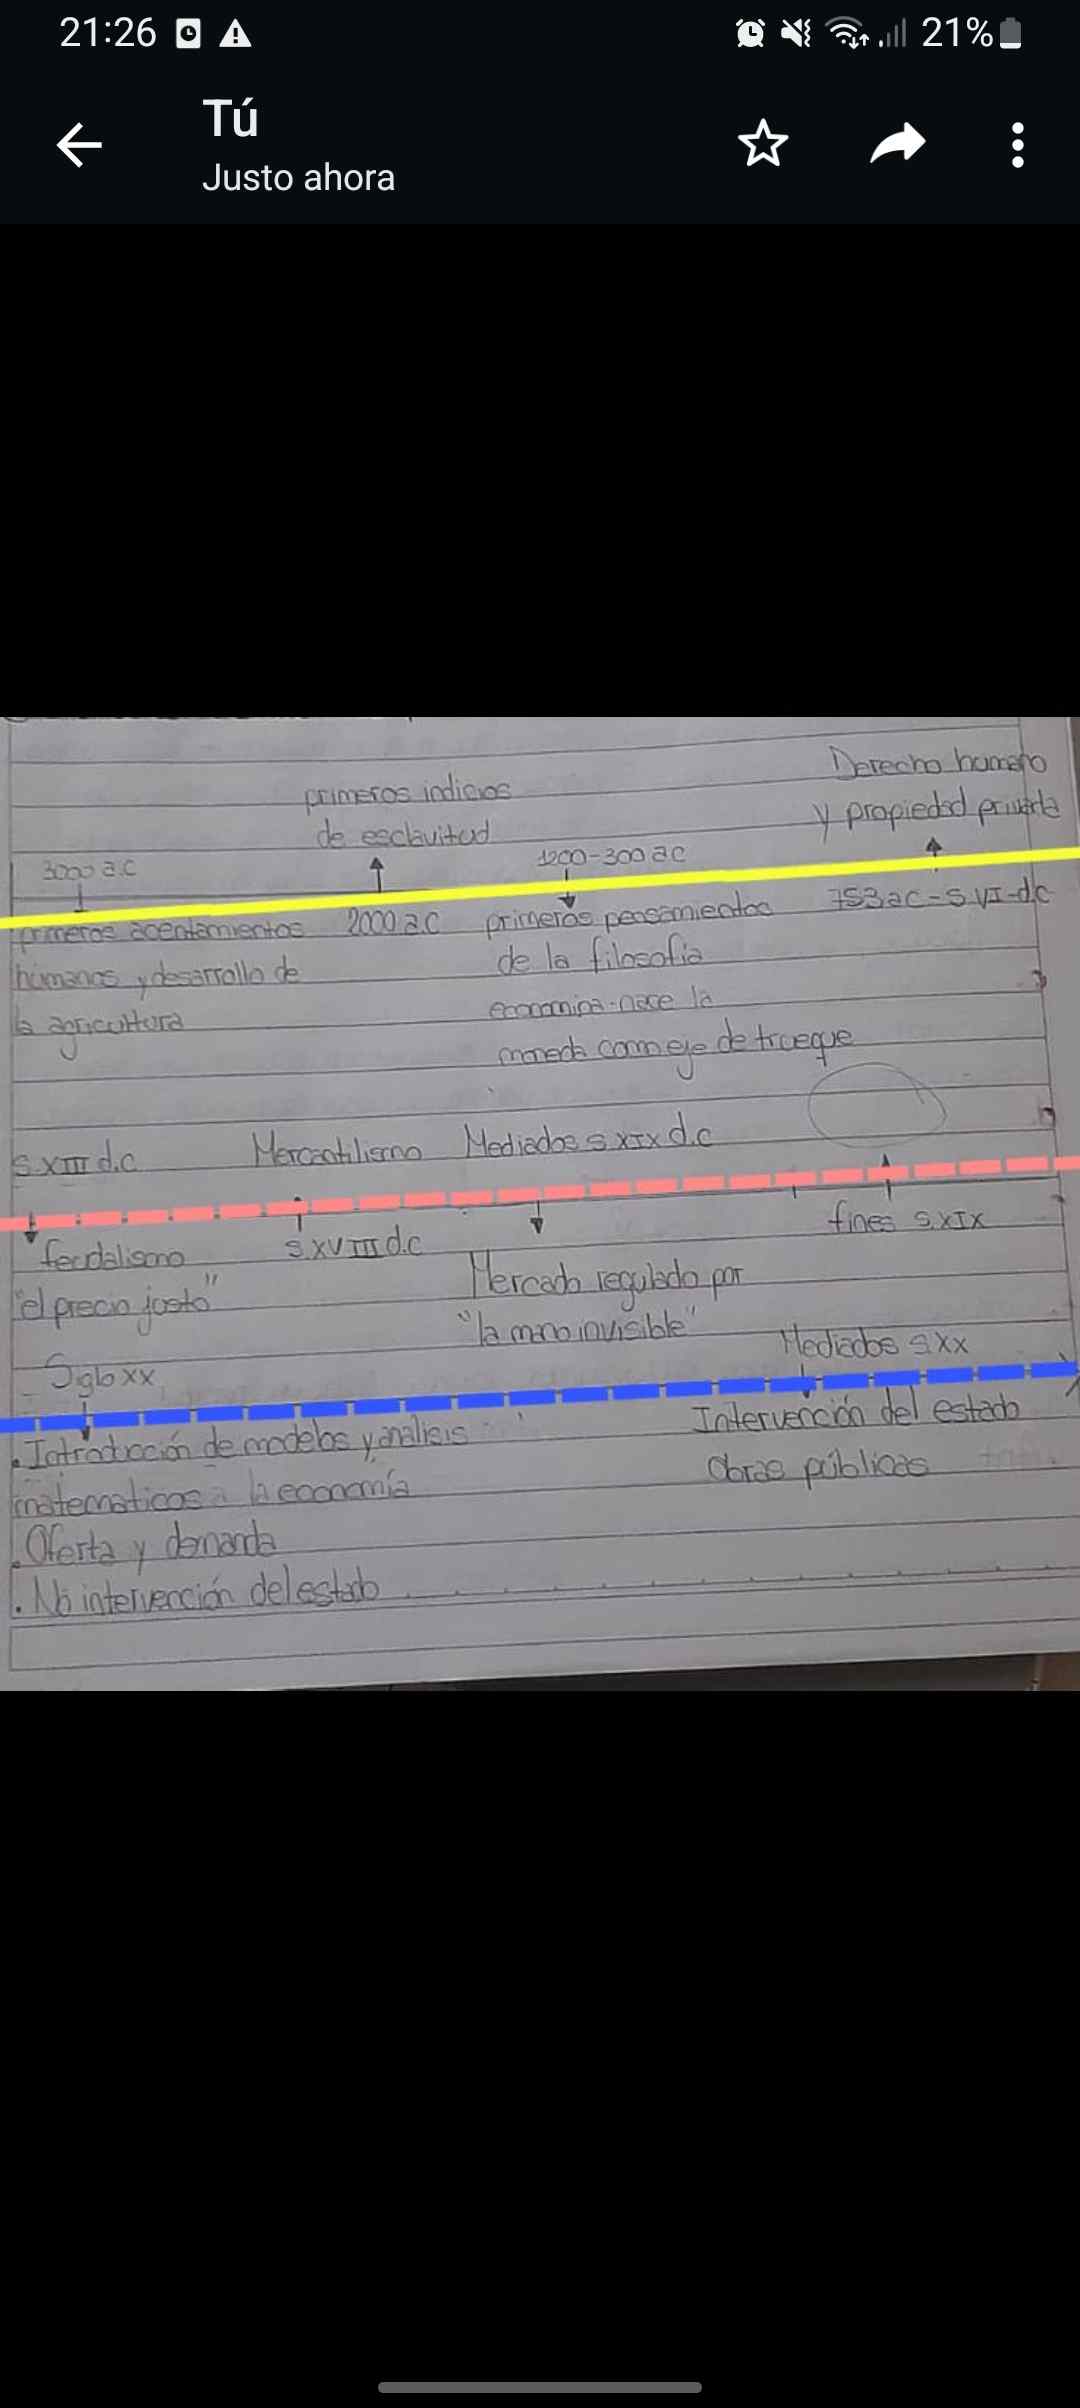 21:26
21%
Tú
Justo ahora
Derecho humano
primeros indicios
y propiedad privada
de esclavitud
3000 a.C
1200-300 a C
primeros acentamientos
2000 a.C
primeros pensamientos
753 a C - S. VI - d.C
humanos y desarrollo de
de la filosofia
la agricultura
nace la
moneda como eje de trueque
S XIII d.C
Mercantilismo
Mediados S XIX d.C
feudalismo
S. XVIII d.C
fines S. XIX
"el precio justo"
Mercado regulado por
"la mano invisible"
Siglo XX
Mediados S.XX
. Introducción de modelos y analisis
Intervención del estado
matematicos a la economía
Obras públicas
. Oferta y demanda
. No intervención del estado